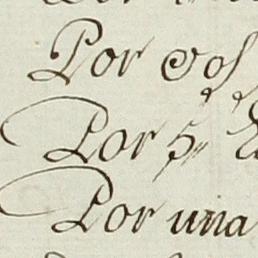 Por dos
Por 5
Por una